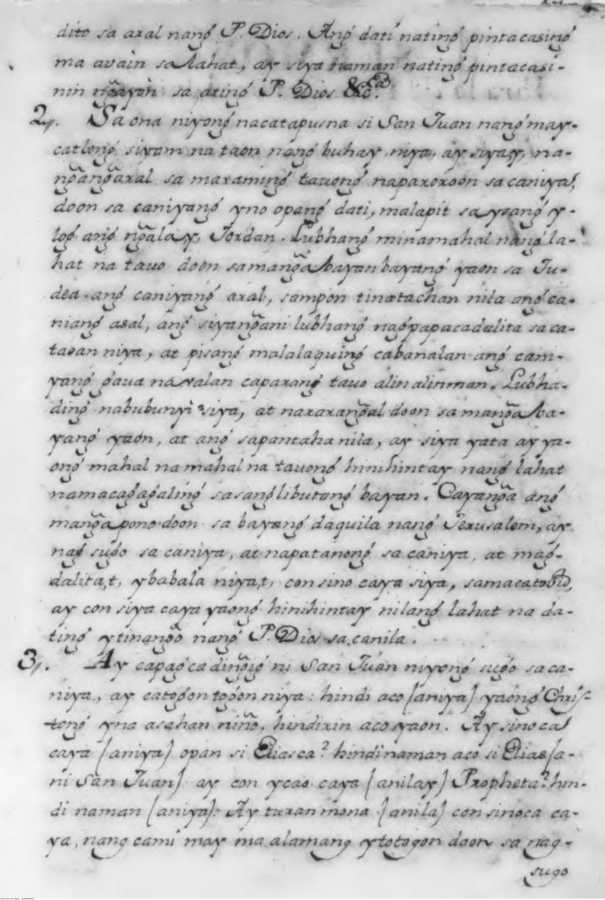 dito sa aral nang̃ P. Dios. Ang̃ dati nating̃ pintacasing̃
ma avain sa lahat, ay siya naman nating̃ pintacasi-
nin ng̃ayon sa ating̃ P. Dios &c.ª
2. Sa ona niyong̃ nacatapus na si San Juan nang̃ may-
catlong̃ siyam na taon nang̃ buhay niya, ay siyay, na-
ng̃ang̃aral sa maraming̃ tauong̃ naparoroon sa caniya,
doon sa caniyang̃ yno opang̃ dati, malapit sa ysang̃ y-
log̃ ang̃ ng̃ala y, Jordan. Lubhang̃ minamahal nang̃ la-
hat na tauo doon sa mang̃a bayan bayang̃ yaon sa Ju-
dea ang̃ caniyang̃ aral, sampon tinatachan nila ang̃ ca-
niang̃ asal, ang̃ siyang̃ani lubhang̃ nag̃papacadalita sa ca-
taoan niya, at pisang̃ malalaquing̃ cabanalan ang̃ cani-
yang̃ gaua na valan caparang̃ tauo alin alinman. Lubha-
ding̃ nabubunyi siya, at nararang̃al doon sa mang̃a ba-
yang̃ yaon, at ang̃ sapantaha nila, ay siya yata ay ya-
ong̃ mahal na mahal na tauong̃ hinihintay nang̃ lahat
na macag̃ag̃aling̃ sa sang̃libutang̃ bayan. Cayang̃a ang̃
mang̃a pono doon sa bayang̃ daquila nang̃ Jerusalem, ay
nag̃ sug̃o sa caniya, at napatanong̃ sa caniya, at mag̃-
dalita, t, ybabala niya, t, con sino caya siya, sa macatovid,
ay con siya caya yaong̃ hinihintay nilang̃ lahat na da-
ting̃ ytinang̃o nang̃ P. Dios sa canila.
3. Ay capag̃ca ding̃ig̃ ni San Juan niyong̃ sug̃o sa ca-
niya, ay catog̃on tog̃on niya: hindi aco [aniya] yaong̃ Chris-
tong̃ yna asahan niño, hindi rin aco yaon. Ay sino ca
caya [aniya] opan si Elias ca? hindi naman aco si Elias [a-
ni San Juan] ay con ycao caya [anilay] Propheta? hin-
di naman [aniya]: Ay turan mona [anila] con sino ca ca-
ya, nang cami may ma alamang ytotogon doon sa nag-
sugo